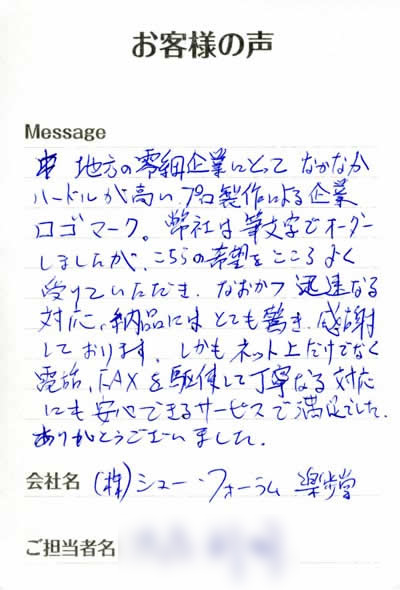 お客様の声
Message
地方の零細企業にとって なかなか
ハードルが高い、プロ製作による企業
ロゴマーク。弊社は筆文字でオーダー
しましたが、こちらの希望をこころよく
受けていただき、なおかつ 迅速なる
対応、納品には とても驚き、感謝
しております。しかもネット上だけでなく
電話、FAXを駆使して丁寧なる対応
にも安心できるサービスで満足でした。
ありがとうございました。
会社名 (株)シュー・フォーラム 楽歩堂
ご担当者名